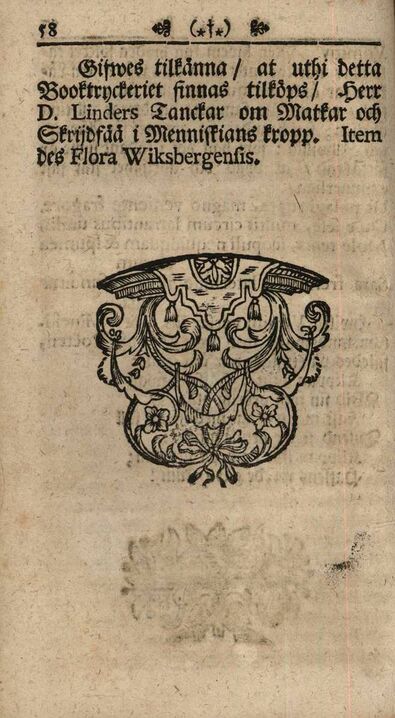 58 (*†*)
Gifwes tilkänna / at uthi detta
Booktryckeriet finnas tilköps / Herr
D. Linders Tanckar om Matkar och
Skrijdfää i Menniskians kropp. Item
des Flora Wiksbergensis.